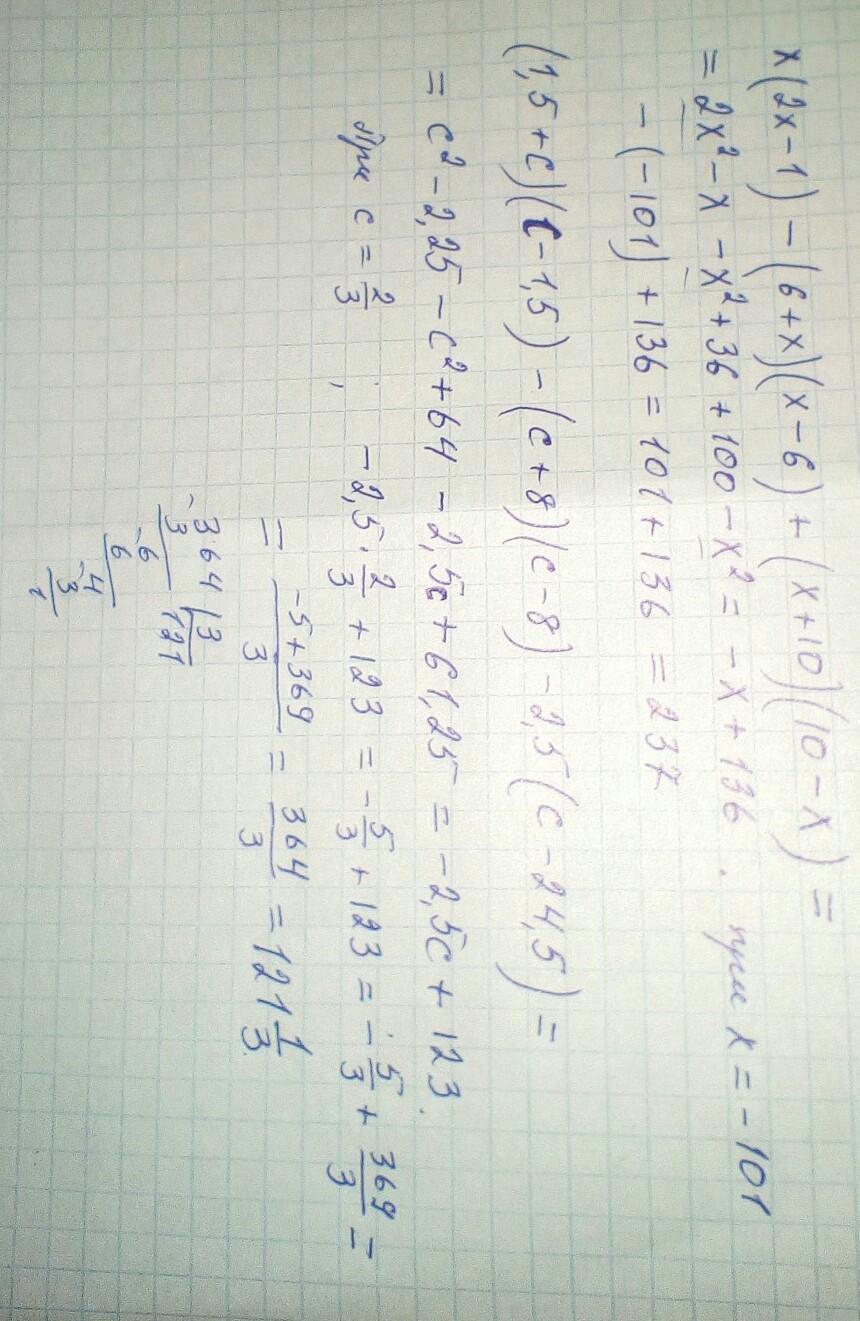 x(2x-1)-(6+x)(x-6)+(x+10)(10-x)=
=2x²-x-x²+36+100-x²=-x+136. при x=-101
-(-101)+136=101+136=237
(1,5+c)(c-1,5)-(c+8)(c-8)-2,5(c-24,5)=
=c²-2,25-c²+64-2,5c+61,25=-2,5c+123.
при c=2/3; -2,5·2/3+123=-5/3+123=-5/3+369/3=
=(-5+369)/3=364/3=121 1/3
-364|3
3 121
-6
6
4
-3
1